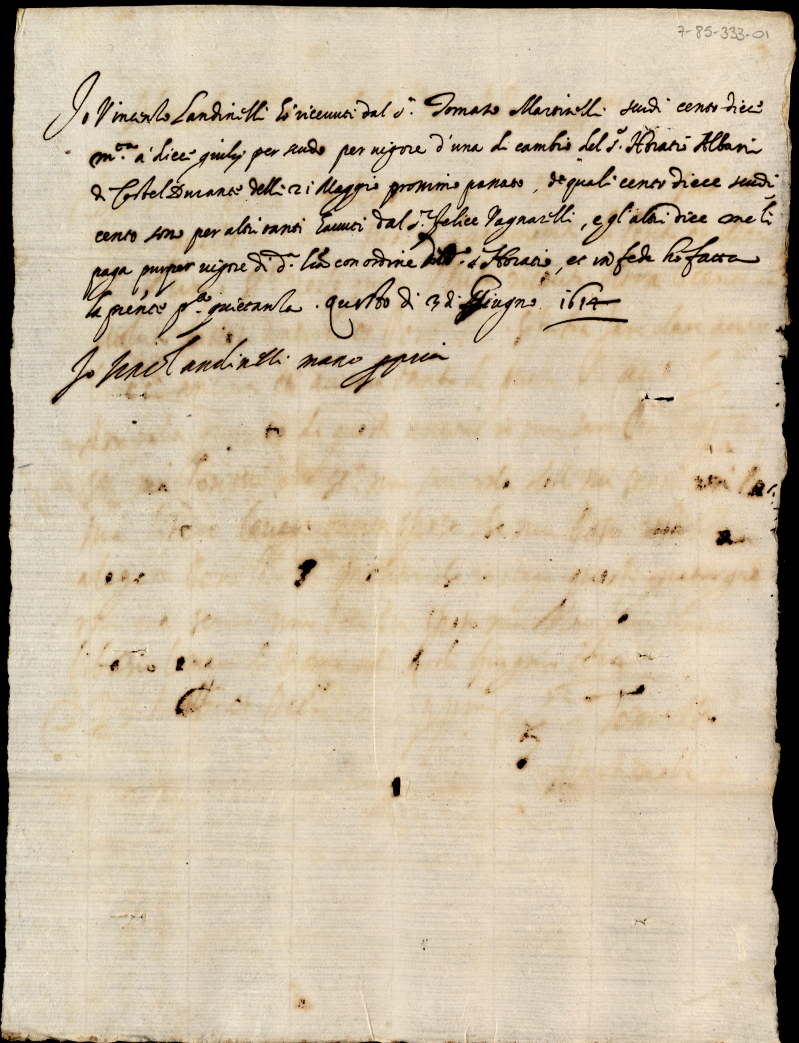 7-85-333-01
Io Vincenzo Landinelli hò ricevuti dal S.r Tomaso Martinelli scudi cento diece
m.ta à diece giulij per scudo per vigore d'una di cambio del S.r Horatio Albani
di Castel Durante delli 21 Maggio prossimo passato, de quali cento diece scudi
cento sono per altri tanti havuti dal S.r felice e gl'altri dice me li
paga pur per vigore di d.a l'ra con ordine S. Horatio, et in fede hò fatta
la p'nte quietanza. questo di 3 di Giugno 1614
Io Landinelli mano ppria